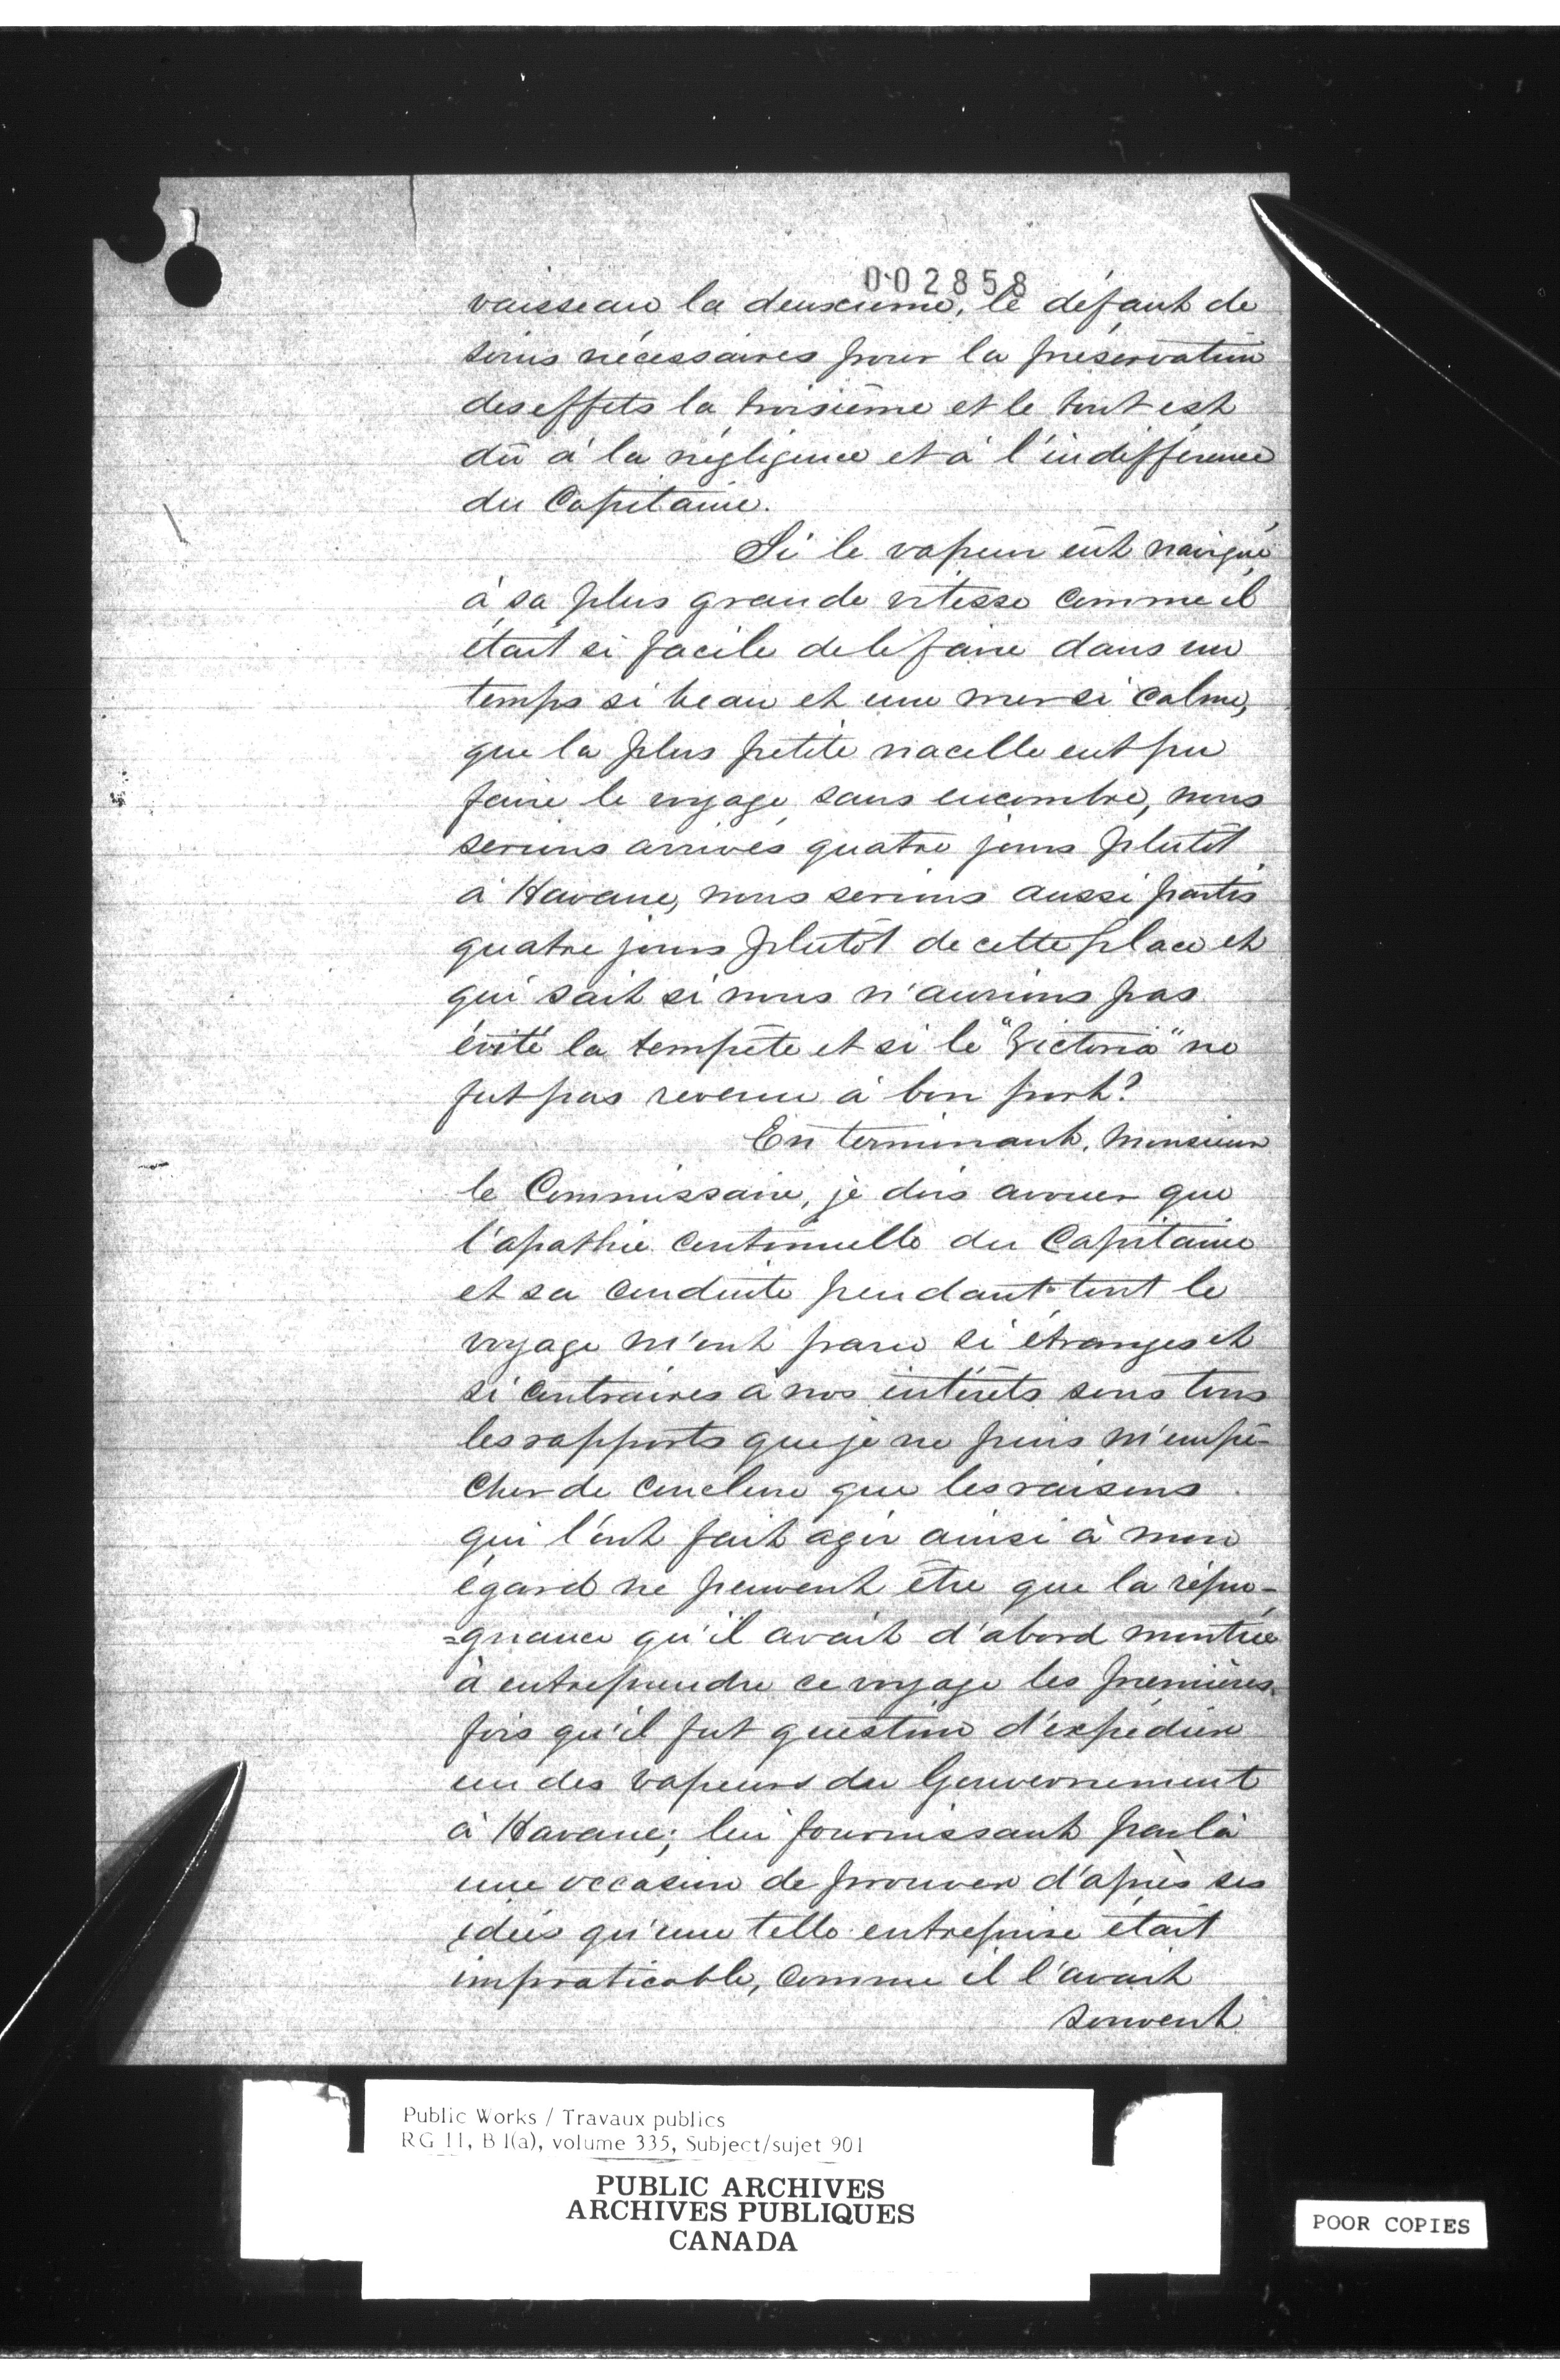 002858
vaisseau la deuxième, le défaut de
soins nécessaires pour la préservation
des effets la troisième et le tout est
dû à la négligence et à l'indifférence
du Capitaine.
Si le vapeur eût navigué
à sa plus grande vitesse comme il
était si facile de le faire dans un
temps si beau et une mer si calme,
que la plus petite nacelle eut pu
faire le voyage sans encombre, nous
serions arrivés quatre jours plutôt
à Havane, nous serions aussi partis
quatre jours plutôt de cette place et
qui sait si nous n'aurions pas
évité la tempête et si le "Victoria" ne
fut pas revenu à bon port?
En terminant, Monsieur
le Commissaire, je dois avouer que
l'apathie continuelle du Capitaine
et sa conduite pendant tout le
voyage m'ont paru si étranges et
si contraires à nos intérêts sous tous
les rapports que je ne puis m'empê-
cher de conclure que les raisons
qui l'ont fait agir ainsi à mon
égard ne peuvent être que la répu-
=gnance qu'il avait d'abord montrée
à entreprendre ce voyage les premières
fois qu'il fut question d'expédier
un des vapeurs du Gouvernement
à Havane; lui fournissant par là
une occasion de prouver d'après ses
idées qu'une telle entreprise était
impraticable, comme il l'avait
souvent
Public Works / Travaux publics
RG 11, B 1(a), volume 335, Subject/sujet 901
PUBLIC ARCHIVES
ARCHIVES PUBLIQUES
CANADA
POOR COPIES